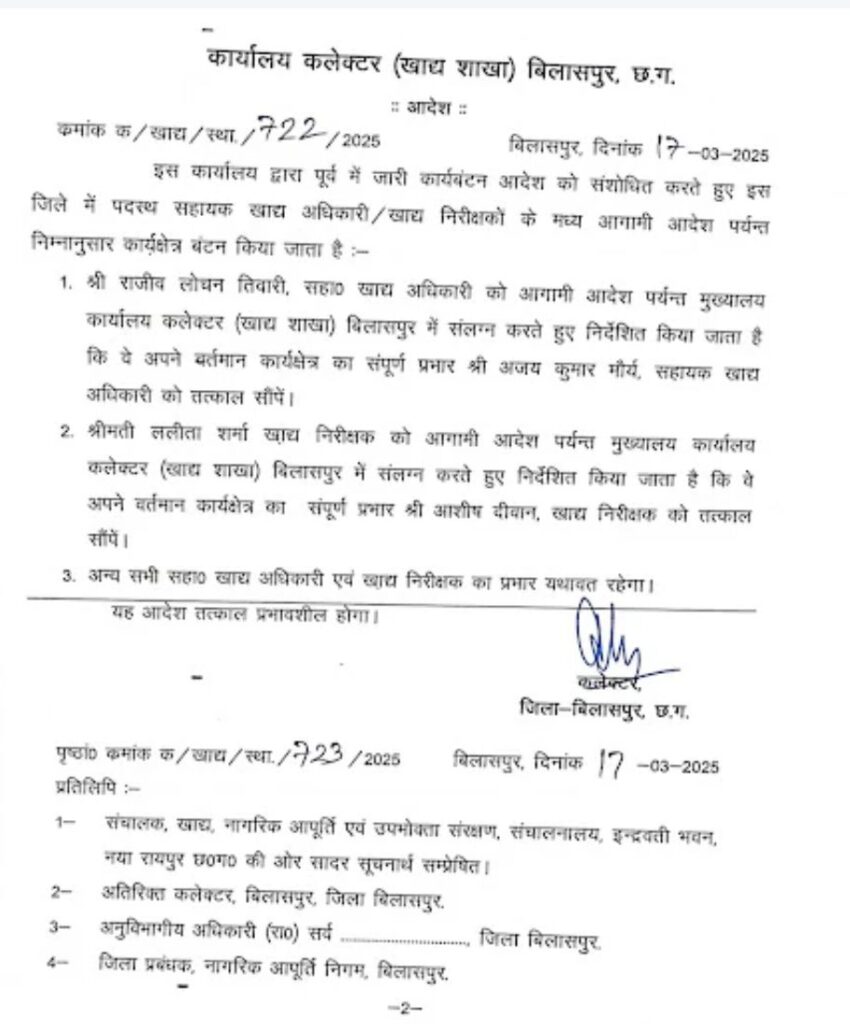 कार्यालय कलेक्टर (खाद्य शाखा) बिलासपुर, छ.ग.
:: आदेश ::
कमांक क/खाद्य/स्था./722/2025 बिलासपुर, दिनांक 17-03-2025
इस कार्यालय द्वारा पूर्व में जारी कार्यबंटन आदेश को संशोधित करते हुए इस
जिले में पदस्थ सहायक खाद्य अधिकारी/खाद्य निरीक्षकों के मध्य आगामी आदेश पर्यन्त
निम्नानुसार कार्यक्षेत्र बंटन किया जाता है :–
1. श्री राजीव लोचन तिवारी, सहा0 खाद्य अधिकारी को आगामी आदेश पर्यन्त मुख्यालय
कार्यालय कलेक्टर (खाद्य शाखा) बिलासपुर में संलग्न करते हुए निर्देशित किया जाता है
कि वे अपने वर्तमान कार्यक्षेत्र का संपूर्ण प्रभार श्री अजय कुमार मौर्य, सहायक खाद्य
अधिकारी को तत्काल सौंपें।
2. श्रीमती ललीता शर्मा खाद्य निरीक्षक को आगामी आदेश पर्यन्त मुख्यालय कार्यालय
कलेक्टर (खाद्य शाखा) बिलासपुर में संलग्न करते हुए निर्देशित किया जाता है कि वे
अपने वर्तमान कार्यक्षेत्र का संपूर्ण प्रभार श्री आशीष दीवान, खाद्य निरीक्षक को तत्काल
सौंपें।
3. अन्य सभी सहा0 खाद्य अधिकारी एवं खाद्य निरीक्षक का प्रभार यथावत रहेगा।
यह आदेश तत्काल प्रभावशील होगा।
कलेक्टर,
जिला–बिलासपुर, छ.ग.
पृष्ठां0 कमांक क/खाद्य/स्था./723/2025 बिलासपुर, दिनांक 17-03-2025
प्रतिलिपि :–
1– संचालक, खाद्य, नागरिक आपूर्ति एवं उपभोक्ता संरक्षण, संचालनालय, इन्द्रवती भवन,
नया रायपुर छ0ग0 की ओर सादर सूचनार्थ सम्प्रेषित।
2– अतिरिक्त कलेक्टर, बिलासपुर, जिला बिलासपुर.
3– अनुविभागीय अधिकारी (रा0) सर्व ........................, जिला बिलासपुर.
4– जिला प्रबंधक, नागरिक आपूर्ति निगम, बिलासपुर.
–2–